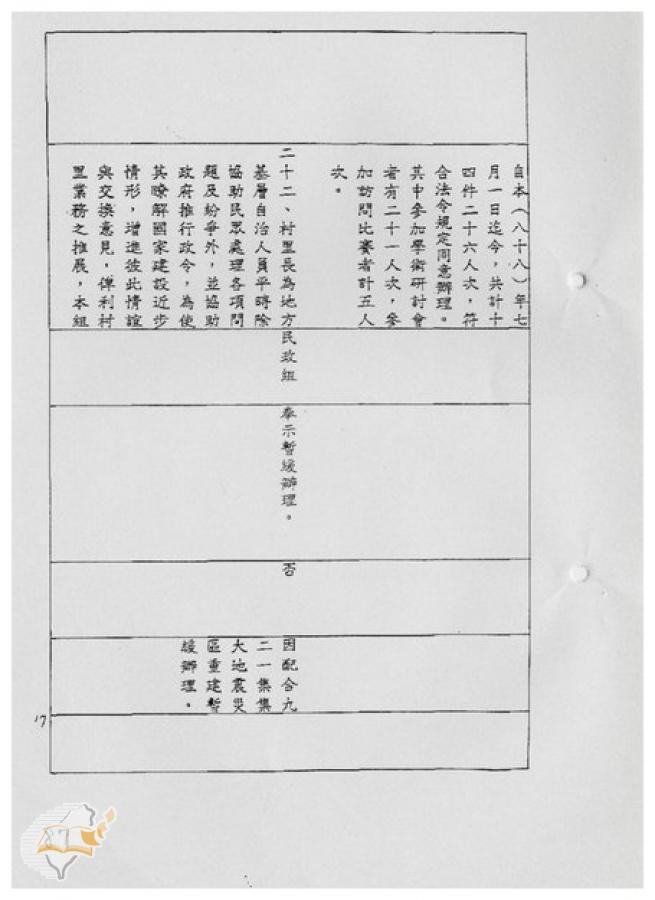 自本(八十八)年七
月一日迄今,共計十
四件二十六人次,符
合法令規定同意辦理。
其中參加學術研討會
者有二十一人次,參
加訪問比賽者計五人
次。
二十二、村里長為地方
基層自治人員平時除
協助民眾處理各項問
題及紛爭外,並協助
政府推行政令,為使
其瞭解國家建設近步
情形,增進彼此情誼
與交換意見,俾利村
里業務之推展,本組
民政組
奉示暫緩辦理。
否
因配合九
二一集集
大地震災
區重建暫
緩辦理。
17